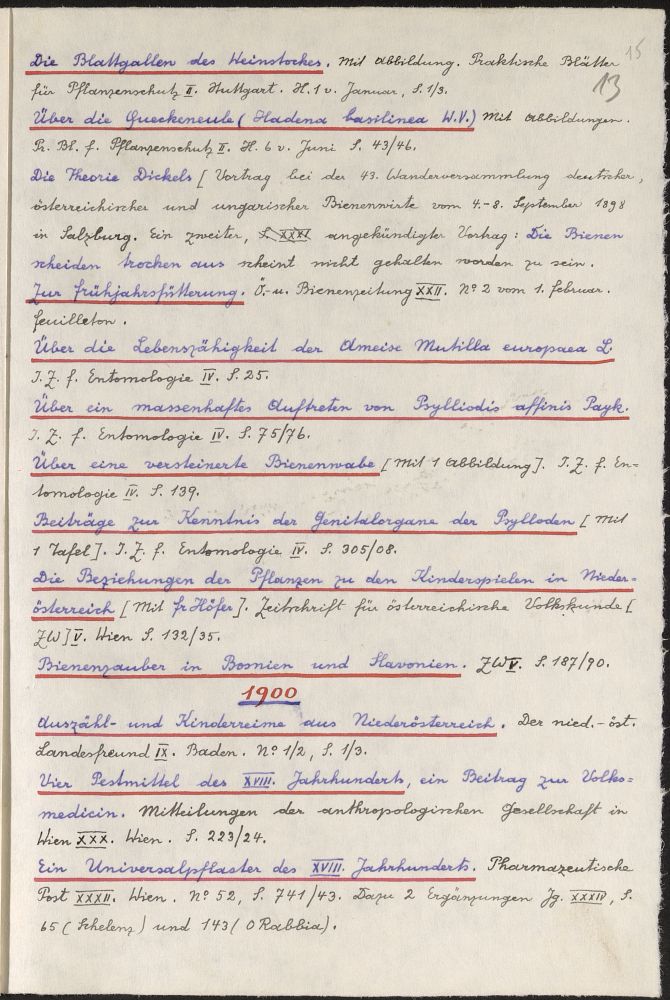 15
Die Blattgallen des Weinstockes. Mit Abbildung. Praktische Blätter
13
für Pflanzenschutz II. Stuttgart. H. 1 v. Januar, S. 1/3.
Über die Queckeneule (Hadena basilinea W.V.) Mit Abbildungen.
Pr. Bl. f. Pflanzenschutz II. H. 6 v. Juni S. 43/46.
Die Theorie Dickels [Vortrag bei der 43. Wanderversammlung deutscher,
österreichischer und ungarischer Bienenwirte vom 4.-8. September 1898
in Salzburg. Ein zweiter, angekündigter Vortrag: Die Bienen
scheiden trocken aus scheint nicht gehalten worden zu sein.
Zur Frühjahrsfütterung. Ö.-u. Bienenzeitung XXII. Nº 2 vom 1. Februar.
Feuilleton.
Über die Lebenszähigkeit der Ameise Mutilla europaea L.
I. Z. f. Entomologie IV. S. 25.
Über ein massenhaftes Auftreten von Psylliodis affinis Payk.
I. Z. f. Entomologie IV. S. 75/76.
Über eine versteinerte Bienenwabe [Mit 1 Abbildung]. I. Z. f. En=
tomologie IV. S. 139.
Beiträge zur Kenntnis der Genitalorgane der Psylloden [Mit
1 Tafel]. I. Z. f. Entomologie IV. S. 305/08.
Die Beziehungen der Pflanzen zu den Kinderspielen in Nieder=
österreich [Mit Fr Höfer]. Zeitschrift für österreichische Volkskunde [
ZW] V. Wien S. 132/35.
Bienenzauber in Bosnien und Slavonien. ZW V. S. 187/90.
1900
Auszähl- und Kinderreime aus Niederösterreich. Der nied.-öst.
Landesfreund IX. Baden. Nº 1/2, S. 1/3.
Vier Pestmittel des XVIII. Jahrhunderts, ein Beitrag zur Volks=
medicin. Mitteilungen der anthropologischen Gesellschaft in
Wien XXX. Wien. S. 223/24.
Ein Universalpflaster des XVIII. Jahrhunderts. Pharmazeutische
Post XXXII. Wien. Nº 52, S. 741/43. Dazu 2 Ergänzungen Jg. XXXIII, S.
65 (Schelenz) und 143 (O Rabbia).